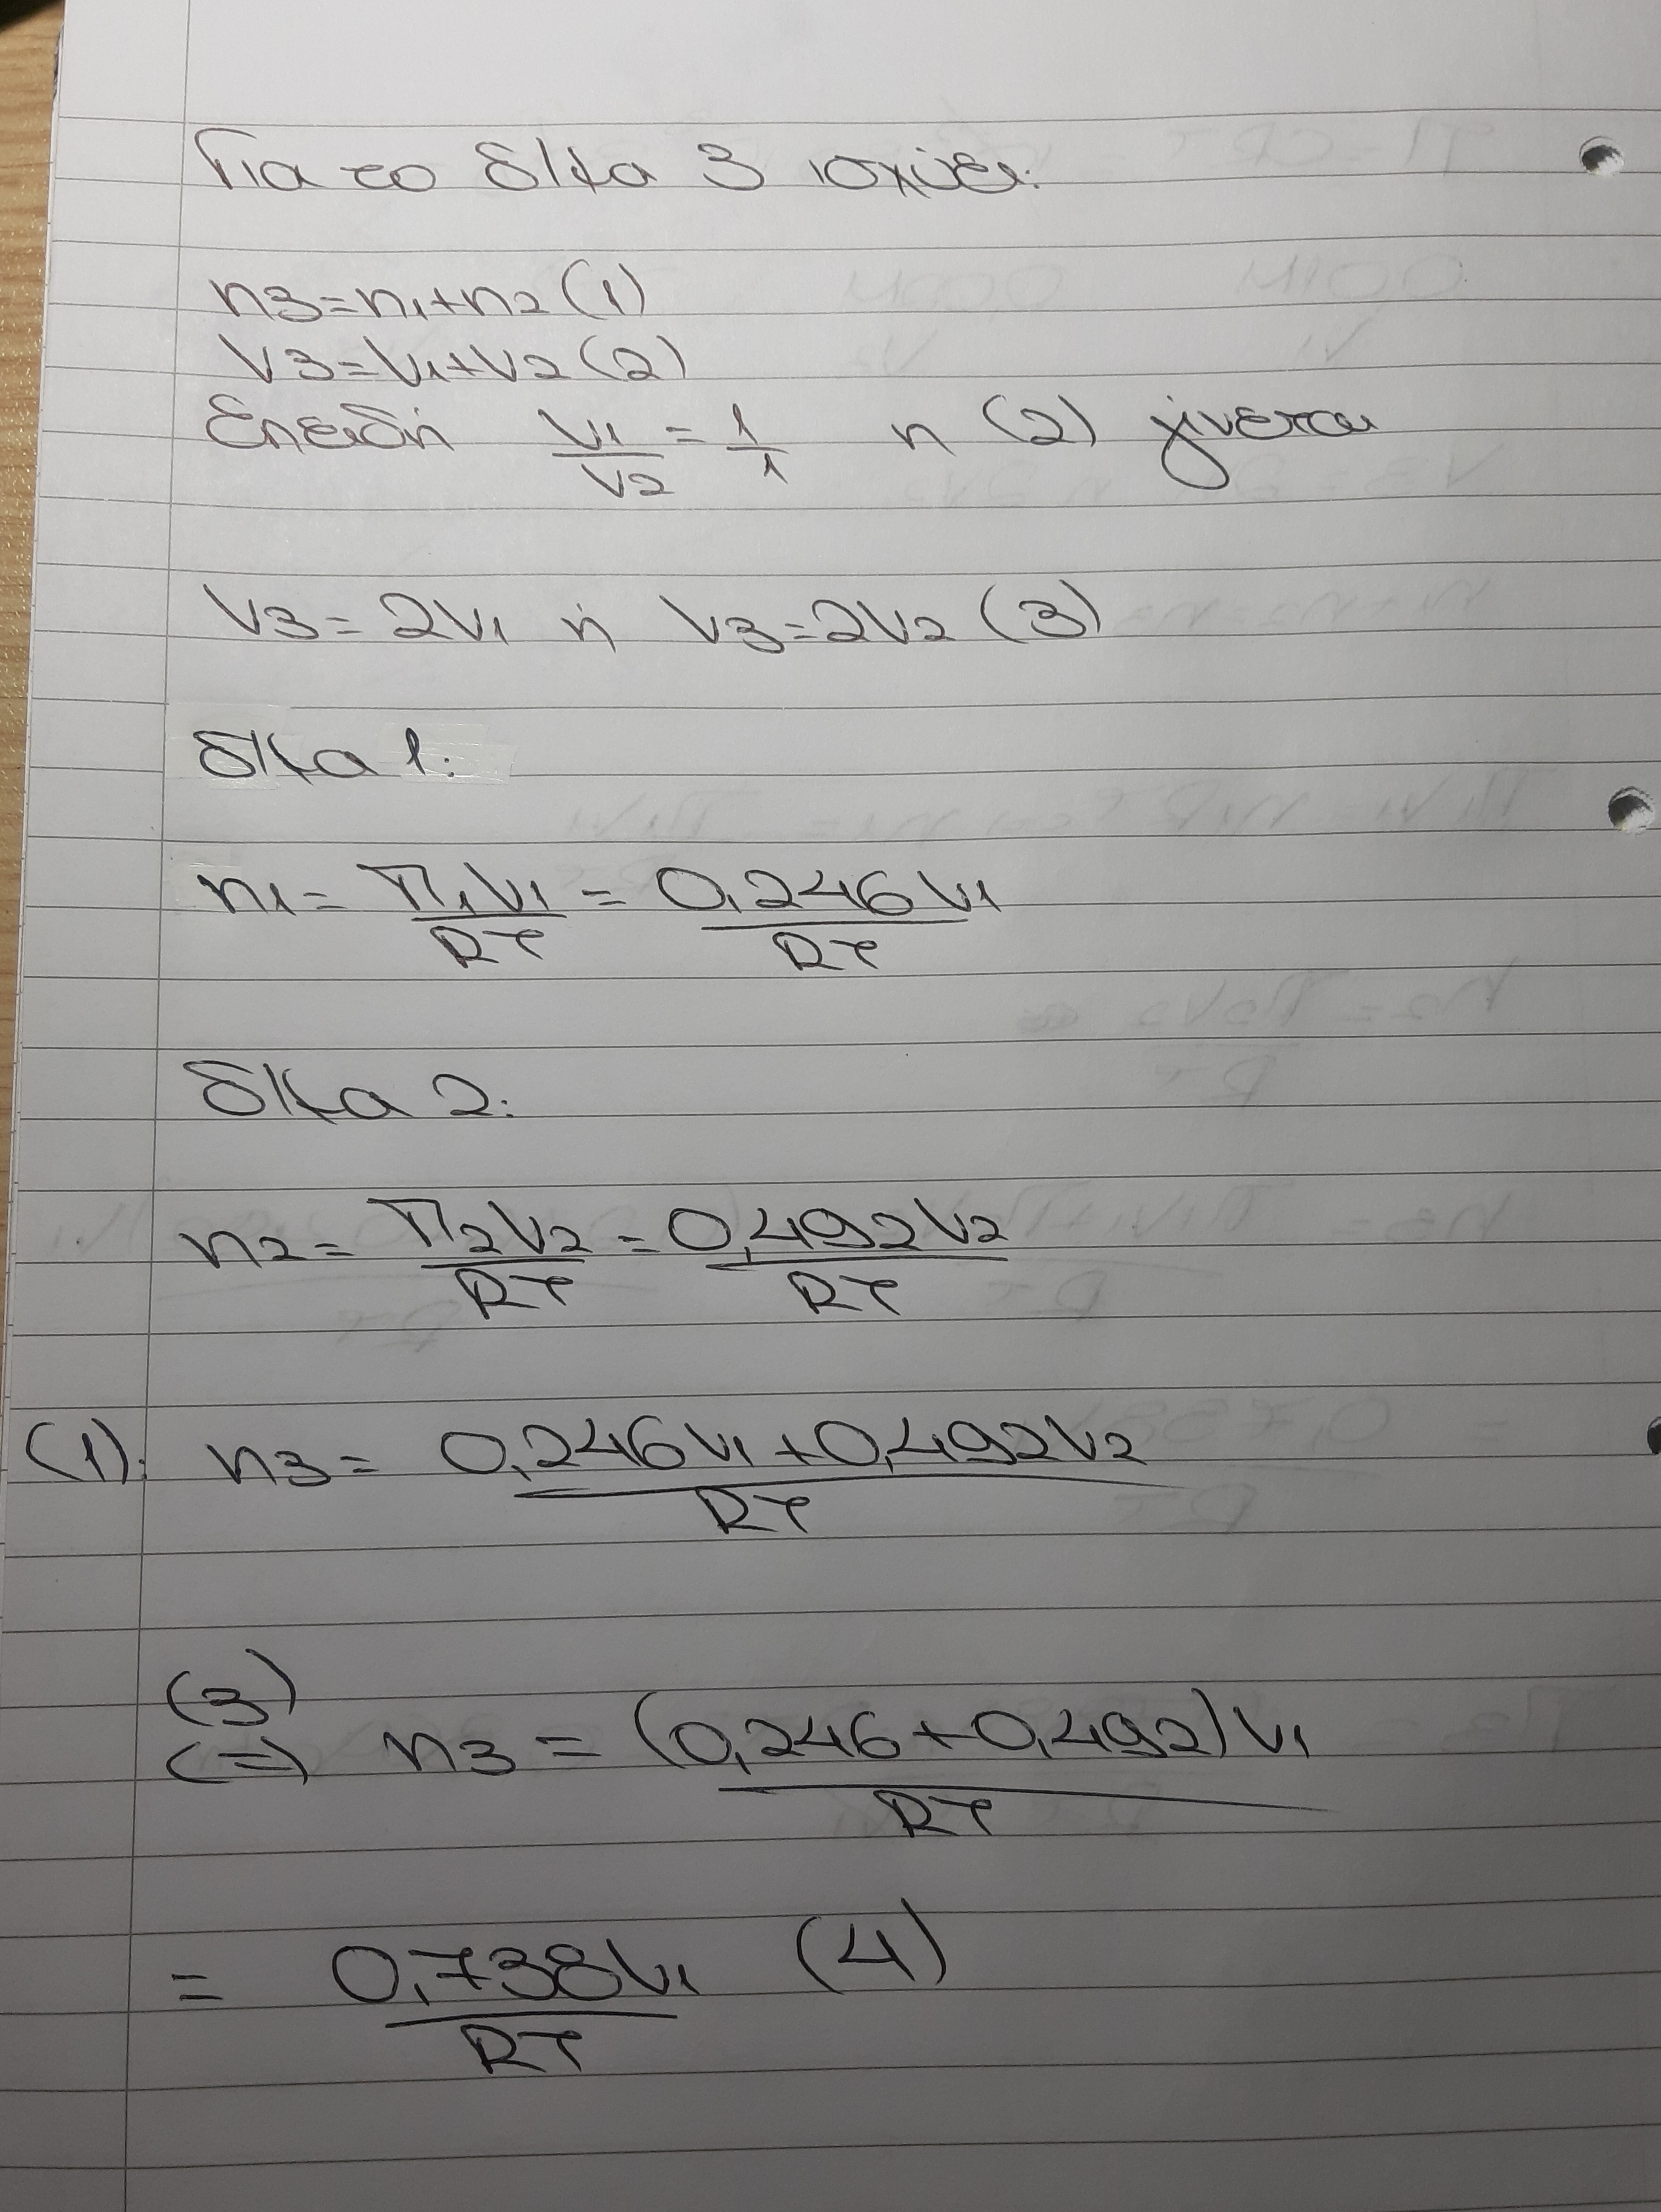 Για το δ/μα 3 ισχύει:
n3=n1+n2 (1)
V3=V1+V2 (2)
Επειδή V1/V2 = 1/1 η (2) γίνεται
V3=2V1 ή V3=2V2 (3)
δ/μα 1:
n1= Π1V1/RT = 0,246V1/RT
δ/μα 2:
n2= Π2V2/RT = 0,492V2/RT
(1): n3= 0,246V1+0,492V2/RT
(3)
<=> n3= (0,246+0,492)V1/RT
= 0,738V1/RT (4)